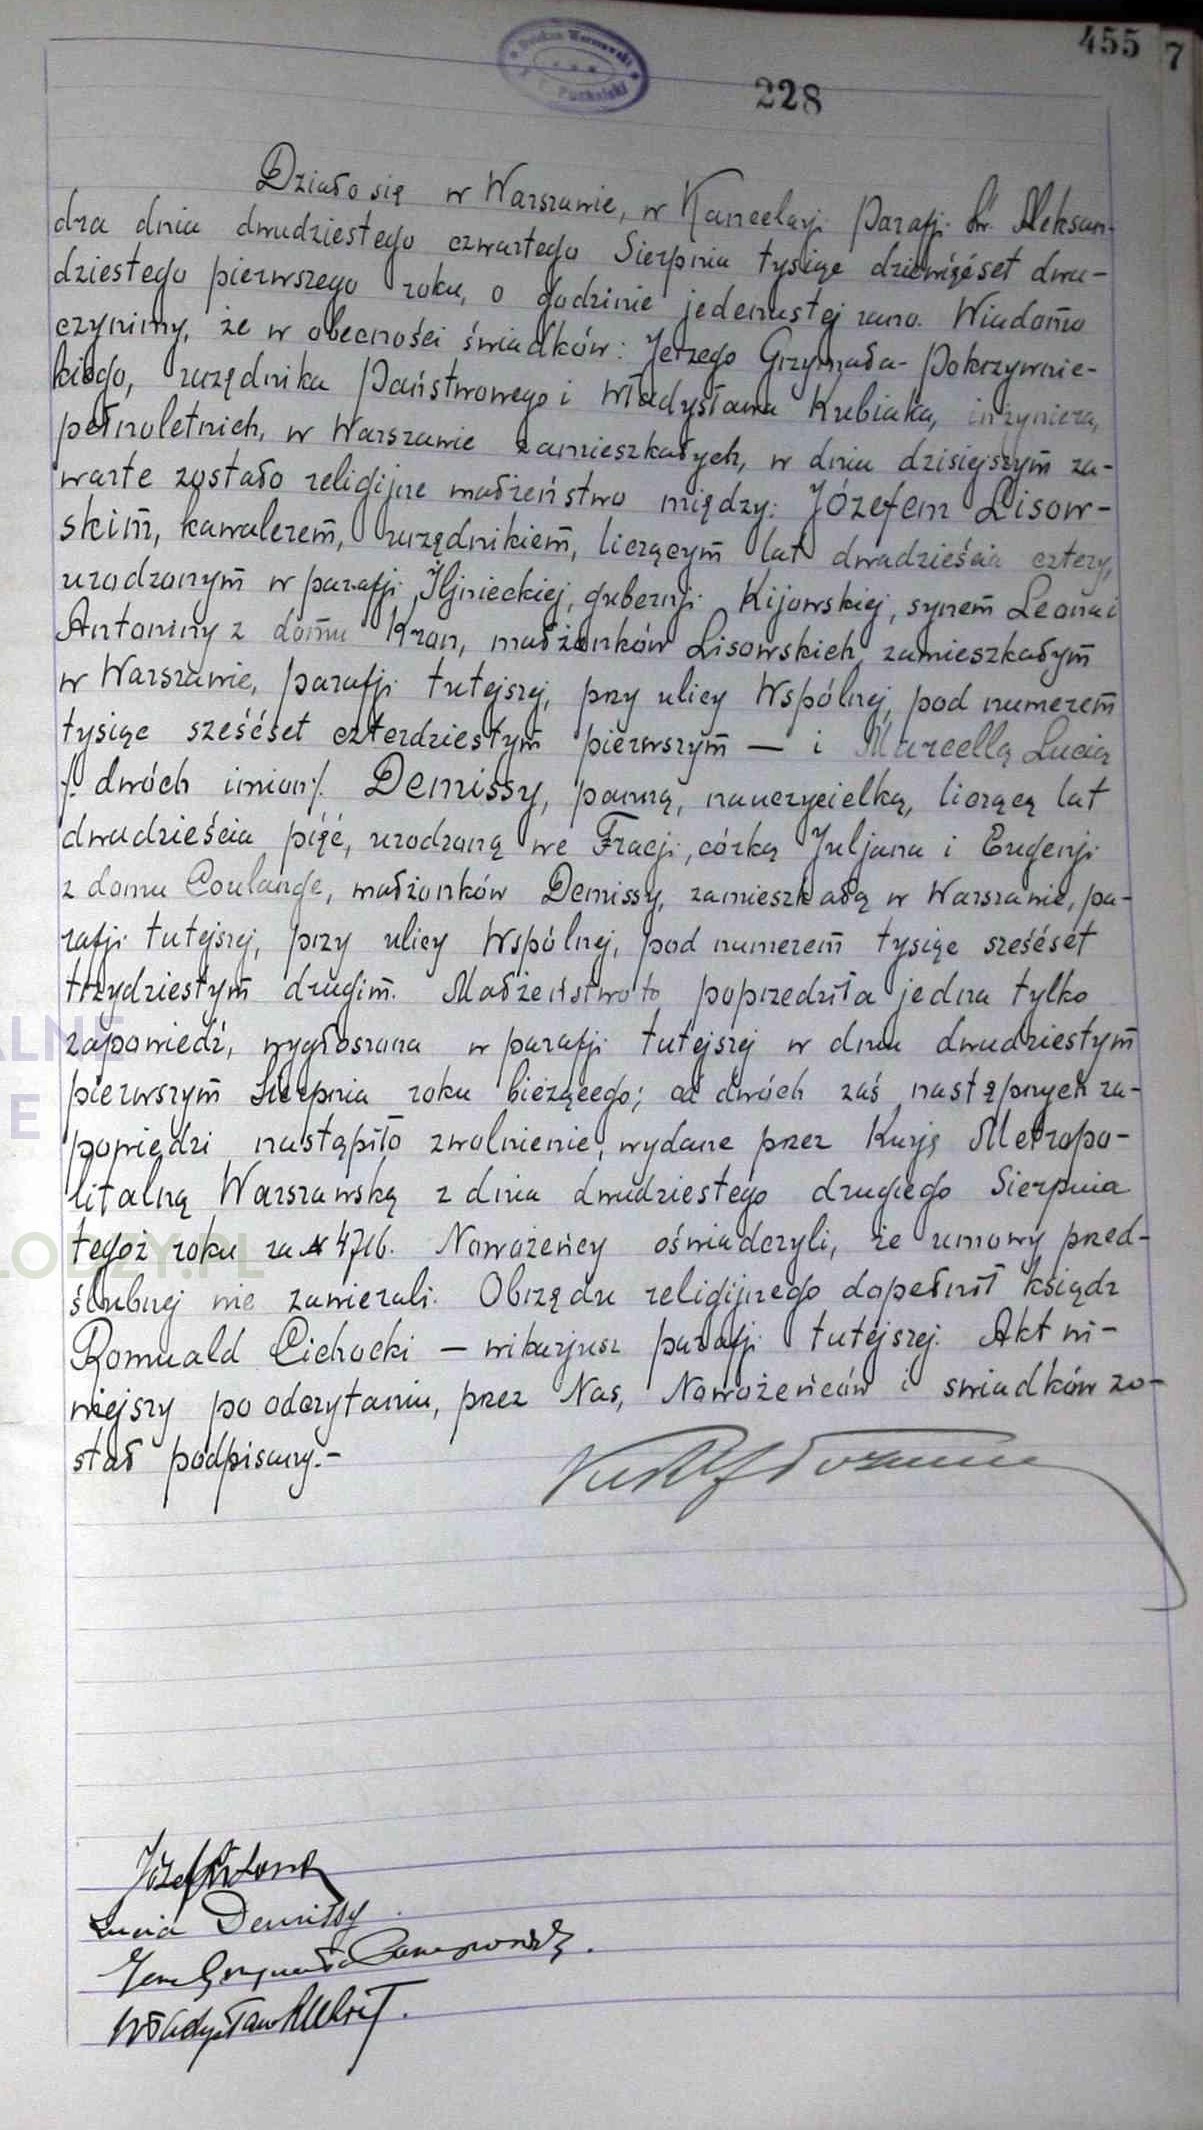 455 7
228
Działo się w Warszawie, w Kancelarji Parafji Św. Aleksan-
dra dnia dwudziestego czwartego Sierpnia tysiąc dziewięćset dwu-
dziestego pierwszego roku, o godzinie jedenastej rano. Wiadomo
czynimy, że w obecności świadków: Jerzego Grzymała-Pokrzywnic-
kiego, urzędnika Państwowego i Władysława Kubiaka, inżyniera,
pełnoletnich, w Warszawie zamieszkałych, w dniu dzisiejszym za-
warte zostało religijne małżeństwo między: Józefem Lisow-
skim, kawalerem, urzędnikiem, liczącym lat dwadzieścia cztery,
urodzonym w parafji Iljnieckiej, gubernji Kijowskiej, synem Leona i
Antoniny z domu Kron, małżonków Lisowskich, zamieszkałym
w Warszawie, parafji tutejszej, przy ulicy Wspólnej, pod numerem
tysiąc sześćset czterdziestym pierwszym — i Marcellą Lucią
/: dwóch imion/. Demissy, panną, nauczycielką, liczącą lat
dwadzieścia pięć, urodzoną we Fracji, córką Juljana i Eugenji
z domu Coulange, małżonków Demissy, zamieszkałą w Warszawie, pa-
rafji tutejszej, przy ulicy Wspólnej, pod numerem tysiąc sześćset
trzydziestym drugim. Małżeństwo to poprzedziła jedna tylko
zapowiedź, wygłoszona w parafji tutejszej w dniu dwudziestym
pierwszym Sierpnia roku bieżącego; od dwóch zaś następnych za-
powiedzi nastąpiło zwolnienie, wydane przez Kurję Metropo-
litalną Warszawską z dnia dwudziestego drugiego Sierpnia
tegoż roku za № 4716. Nowożeńcy oświadczyli, że umowy przed-
ślubnej nie zawierali. Obrzędu religijnego dopełnił ksiądz
Romuald Cichocki — wikarjusz parafji tutejszej. Akt ni-
niejszy po odczytaniu, przez Nas, Nowożeńców i swiadków zo-
stał podpisany.-
Józef
Lucia Demissy
Władysław